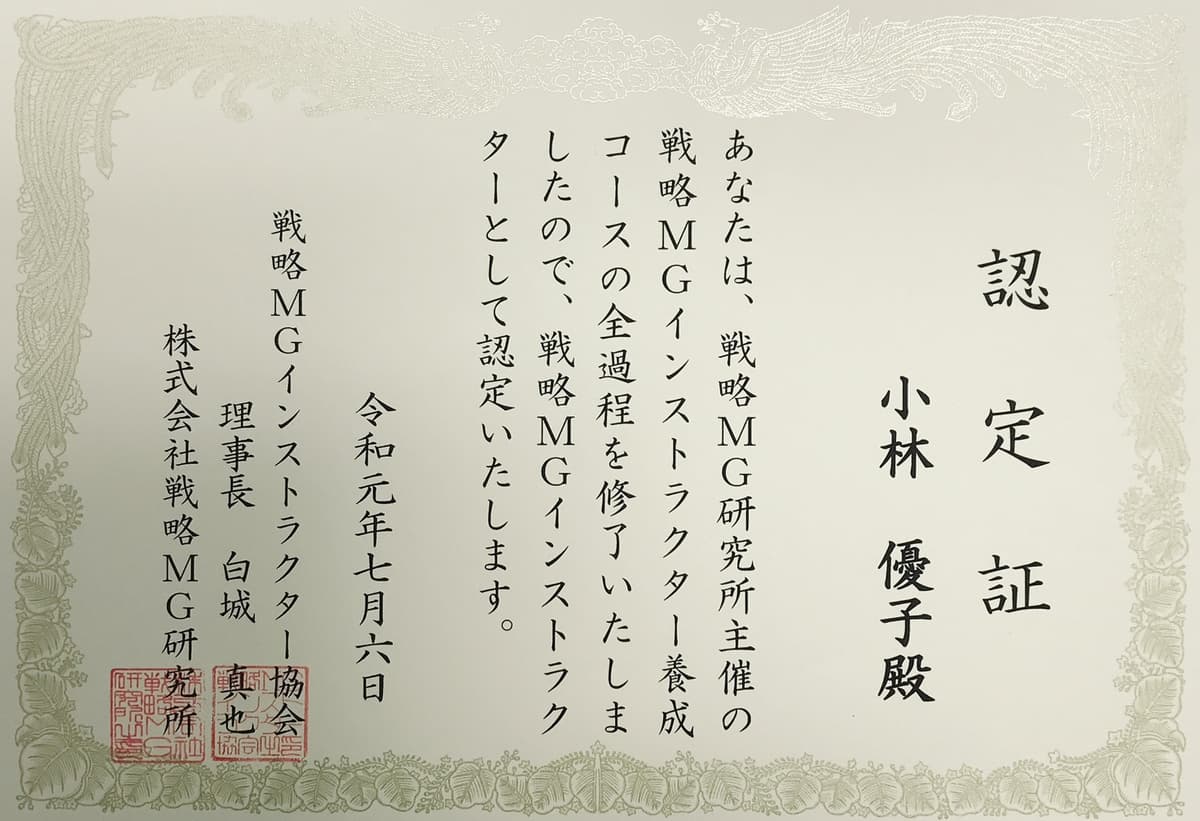 認定証
小林 優子殿
あなたは、戦略MG研究所主催の
戦略MGインストラクター養成
コースの全過程を修了いたしま
したので、戦略MGインストラク
ターとして認定いたします。
令和元年七月六日
戦略MGインストラクター協会
理事長 白城 真也
株式会社戦略MG研究所